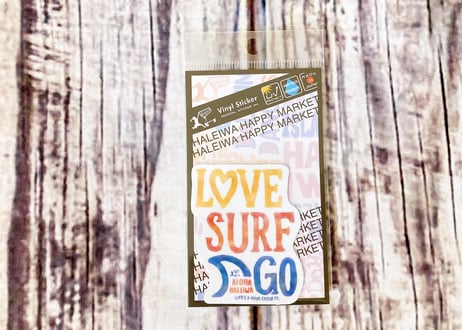 Vinyl Sticker
UV
HALEIWA HAPPY MARKET
HALEIWA HAPPY MARKET
LOVE
SURF
GO
ALOHA
HALEIWA
LIFE'S A WAVE CATCH IT.